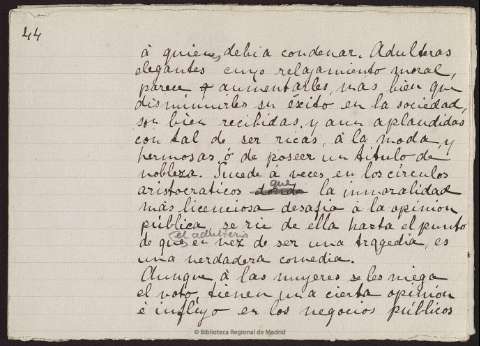 44
á quienes debia condenar. Adulteras
elegantes cuyo relajamiento moral,
parece aumentarles, mas bien que
disminuirles su éxito en la sociedad,
son bien recibidas, y aun aplaudidas
con tal de ser ricas, á la moda, y
hermosas ó de poseer un titulo de
nobleza. Sucede á veces, en los círculos
que
aristocraticos donde la inmoralidad
más licenciosa desafia á la opinion
pública, se rie de ella hasta el punto
el adulterio
de que en vez de ser una tragedia, es
una verdadera comedia.
Aunque á las mujeres se les niega
el voto, tienen una cierta opinion
é influjo en los negocios públicos
© Biblioteca Regional de Madrid